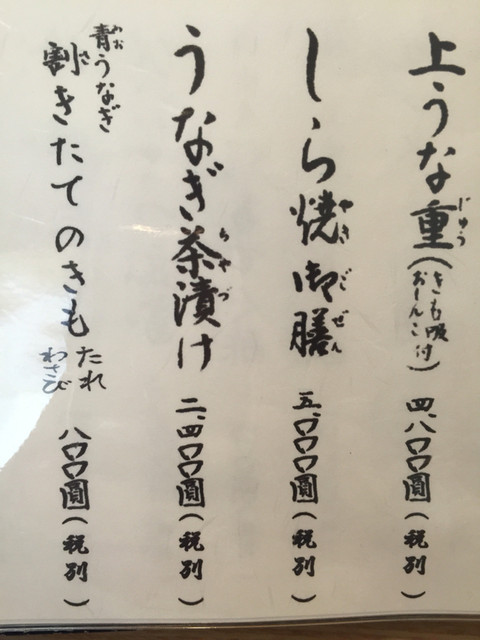 上うな重(きも吸付おしんこ) 四、八〇〇圓(税別)
しら焼御膳 五、〇〇〇圓(税別)
うなぎ茶漬け 二、四〇〇圓(税別)
青うなぎ
割きたてのきも たれ わさび 八〇〇圓(税別)